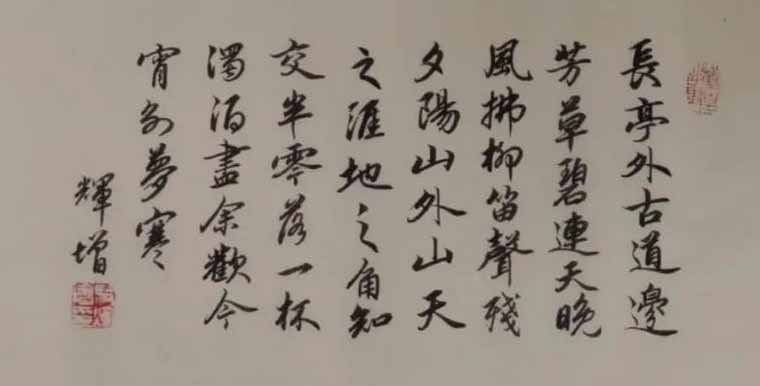 長亭外古道邊
芳草碧連天晚
風拂柳笛聲殘
夕陽山外山天
之涯地之角知
交半零落一杯
濁酒盡余歡今
宵別夢寒
輝增